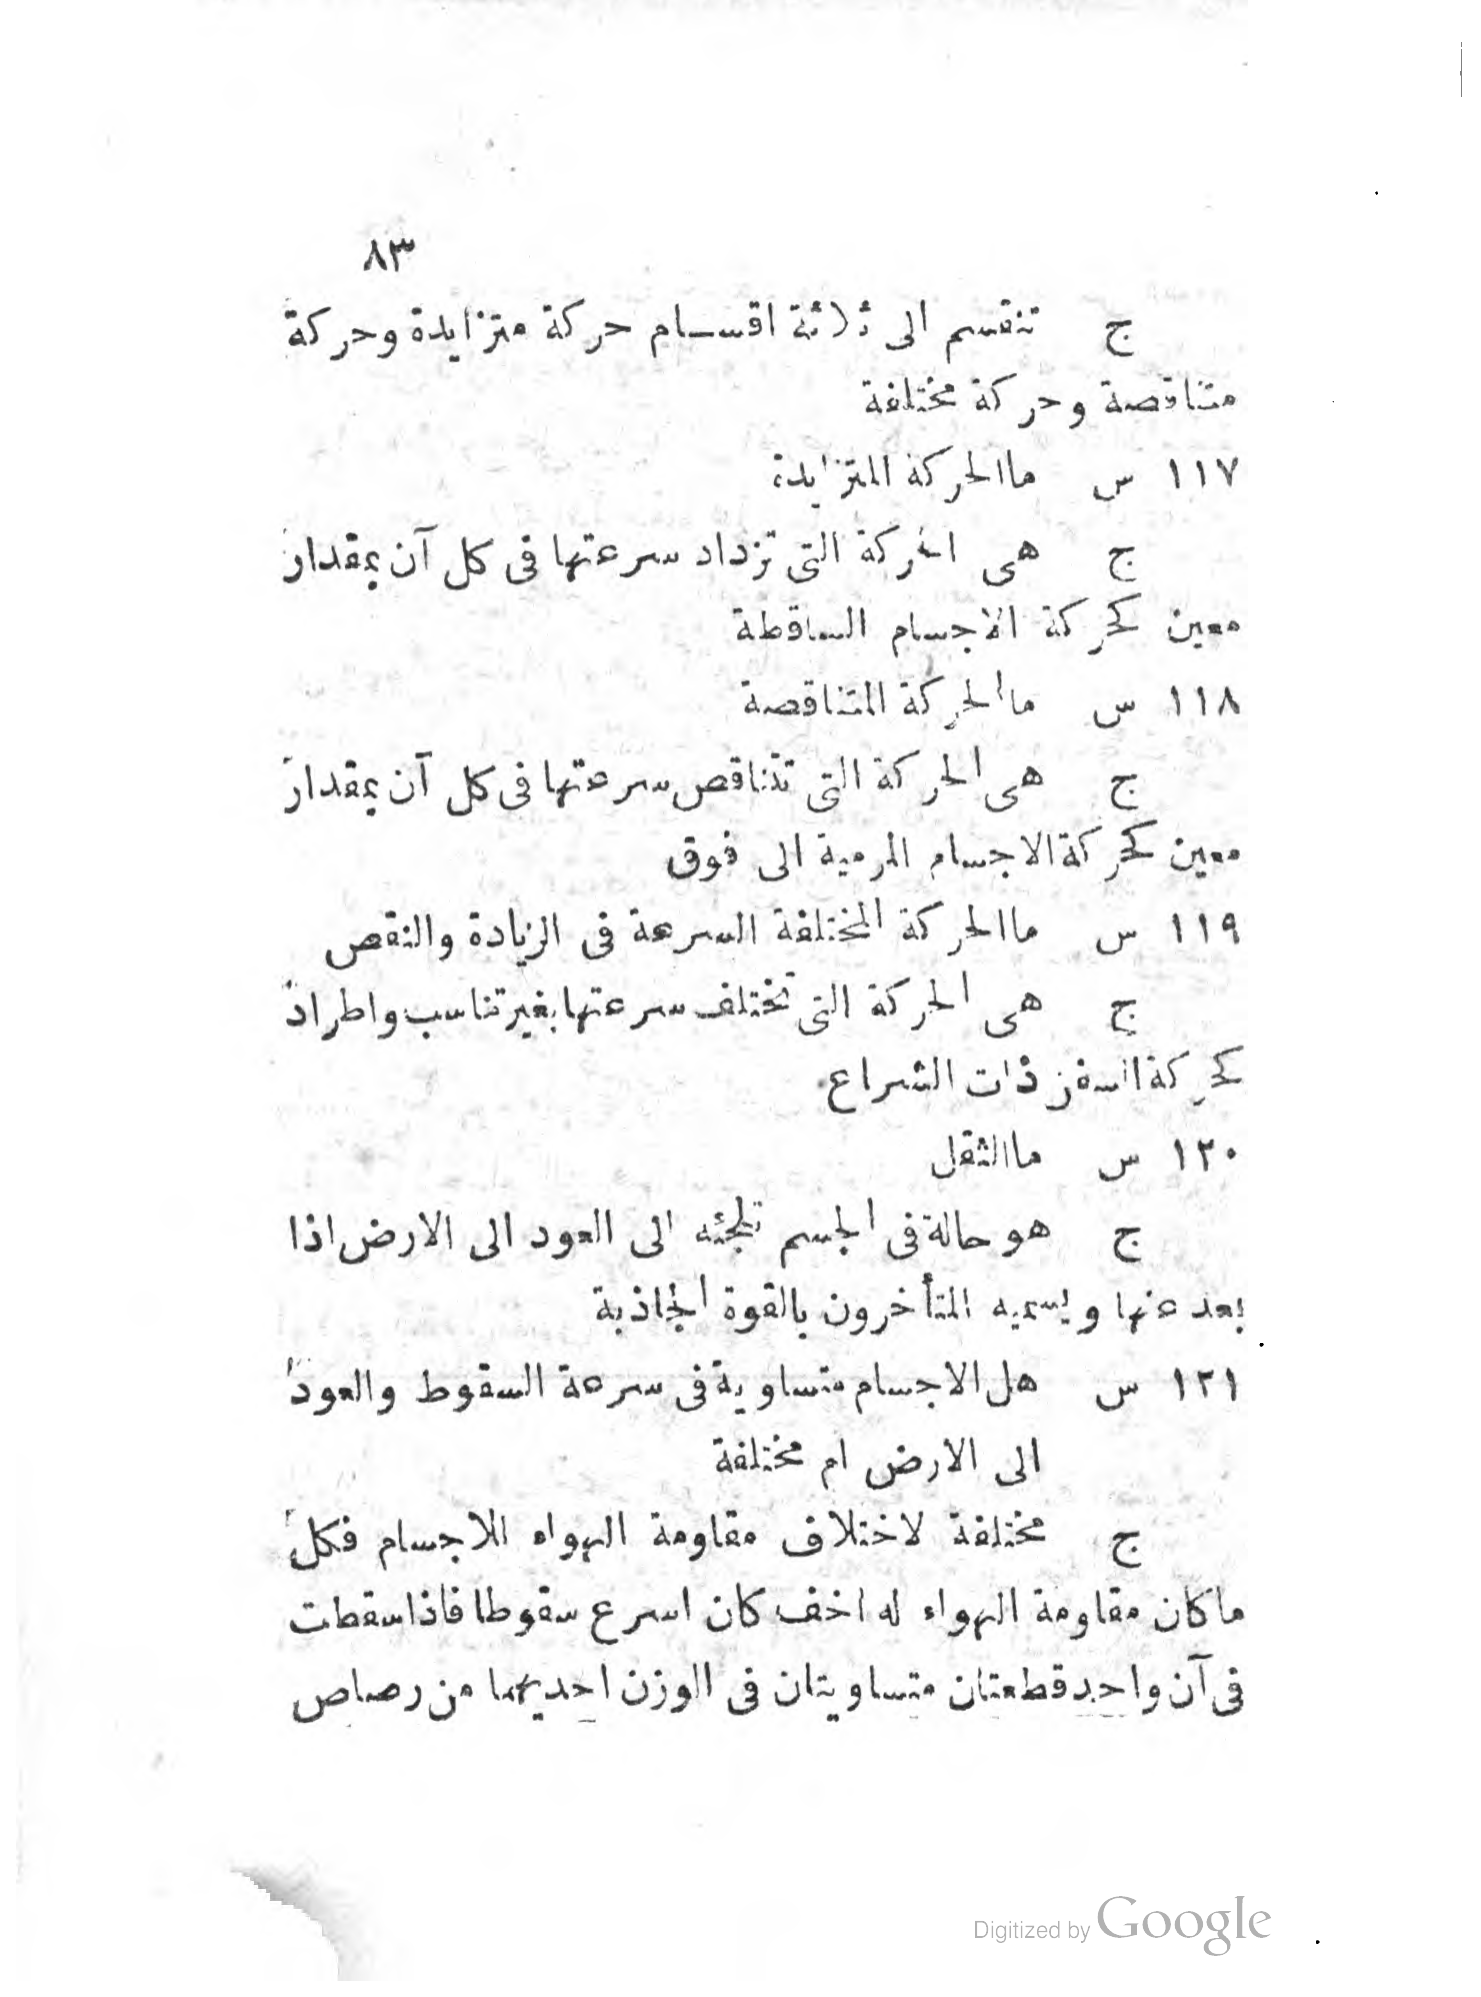 ٨٣
ج تنقسم الى ثلاثة اقسام حركة متزايدة وحركة
متناقصة وحركة مختلفة
١١٧ س ماالحركة المتزايدة
ج هى الحركة التى تزداد سرعتها فى كل آن بمقدار
معين كحركة الاجسام الساقطة
١١٨ س ماالحركة المتناقصة
ج هى الحركة التى تتناقص سرعتها فى كل آن بمقدار
معين كحركة الاجسام المرمية الى فوق
١١٩ س ماالحركة المختلفة السرعة فى الزيادة والنقص
ج هى الحركة التى تختلف سرعتها بغير تناسب واطراد
كحركة السفن ذات الشراع
١٢٠ س ماالثقل
ج هو حالة فى الجسم تلجئه الى العود الى الارض اذا
بعد عنها ويسميه المتأخرون بالقوة الجاذبة
١٢١ س هل الاجسام متساوية فى سرعة السقوط والعود
الى الارض ام مختلفة
ج مختلفة لاختلاف مقاومة الهواء للاجسام فكل
ماكان مقاومة الهواء له اخف كان اسرع سقوطا فاذا سقطت
فى آن واحد قطعتان متساويتان فى الوزن احديهما من رصاص
Digitized by Google